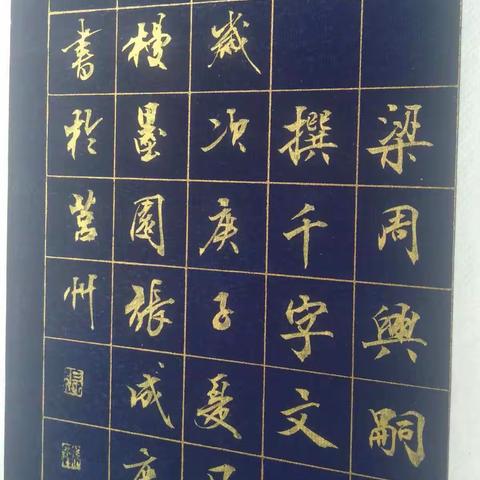 梁周興嗣
撰千字文
歲次庚子夏
墨園張成
書於莒州